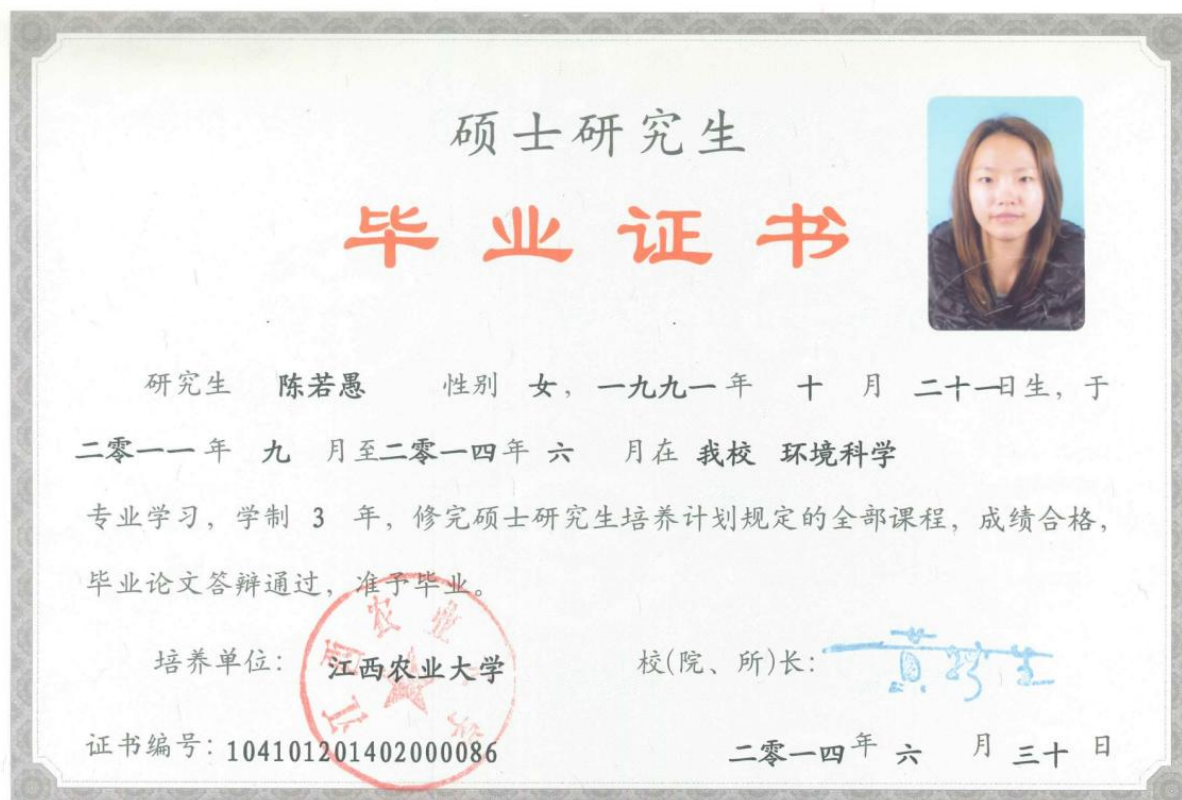 硕士研究生
毕业证书
研究生 陈若愚 性别 女，一九九一年 十 月 二十一日生，于
二零一一年 九 月至二零一四年 六 月在 我校 环境科学
专业学习，学制 3 年，修完硕士研究生培养计划规定的全部课程，成绩合格，
毕业论文答辩通过，准予毕业。
培养单位：江西农业大学 校(院、所)长：
证书编号：104101201402000086 二零一四年 六 月 三十 日